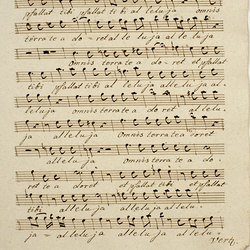 psallat tibi psallat tibi alleluja omnis
terra te a do- ret alleluja alleluja
omnis terra te a do ret et psallat
et psallat tibi alleluja alleluja al-
leluja alleluja omnis terra te a do ret
ja alleluja omnis terra te a doret
alleluja omnis terra te a do-
ret te a doret et psallat tibi et psallat
tibi alleluja alleluja alleluja allelu
ja- alleluja alleluja alleluja.